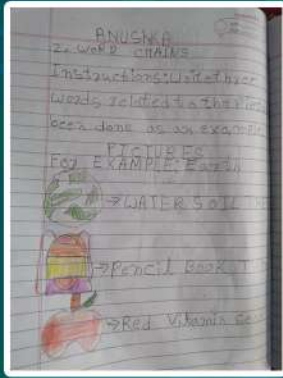 ANUSHKA
2. WORD CHAINS
Instructions: Write three
words related to the Pictu
been done as an example
PICTURES
For EXAMPLE: Earth
→WATER SOIL TRE
→Pencil Book
→Red Vitamin